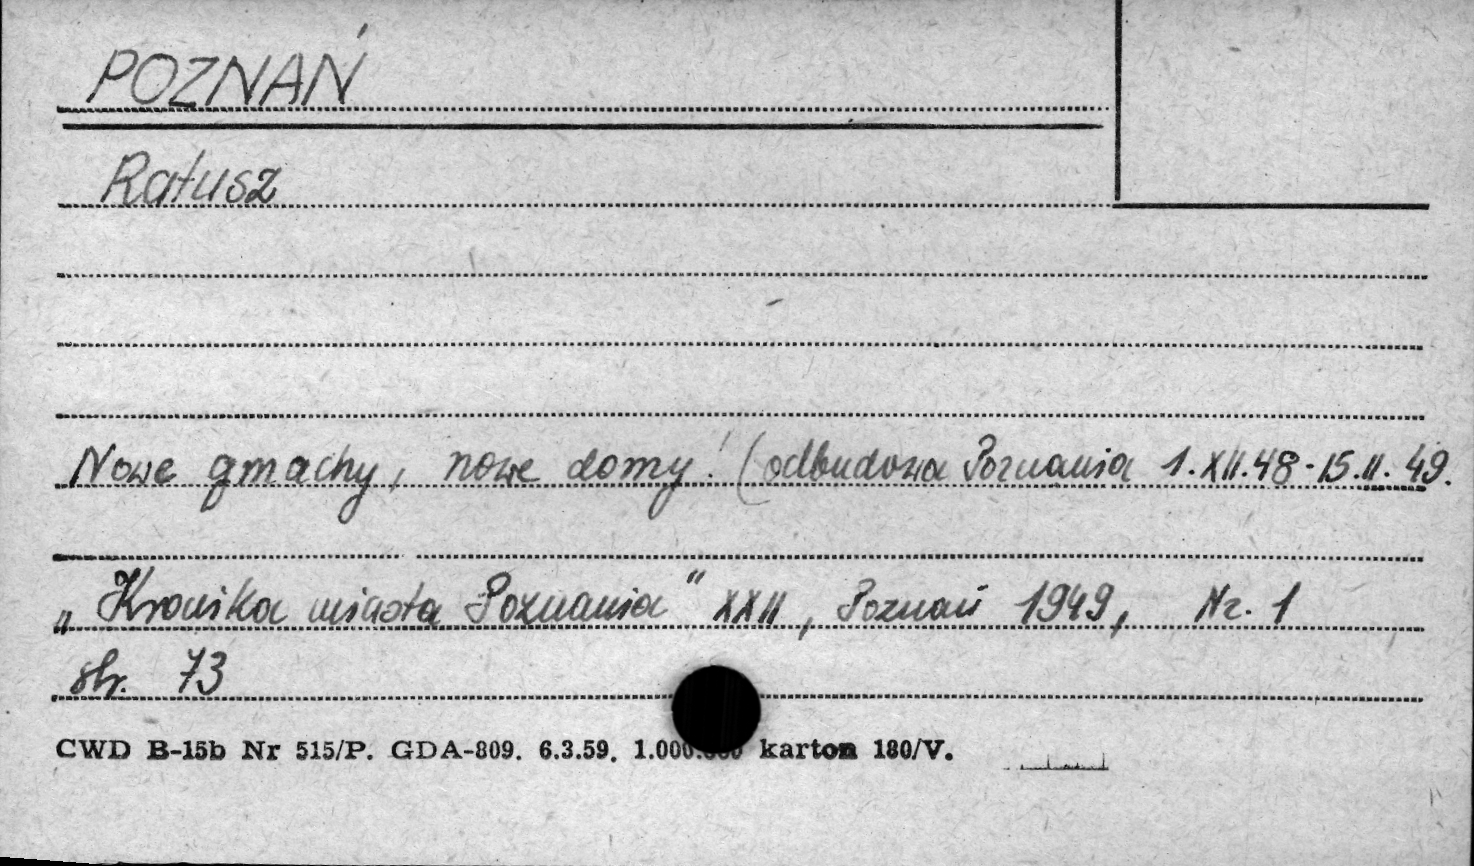 POZNAŃ
Ratusz
Nowe gmachy, nowe domy! (odbudowa Poznania 1.XII.48-15.II.49.
„Kronika miasta Poznania" XXII, Poznań 1949, Nr. 1
str. 73
CWD B-15b Nr 515/P. GDA-809. 6.3.59. 1.000.000 karton 180/V.